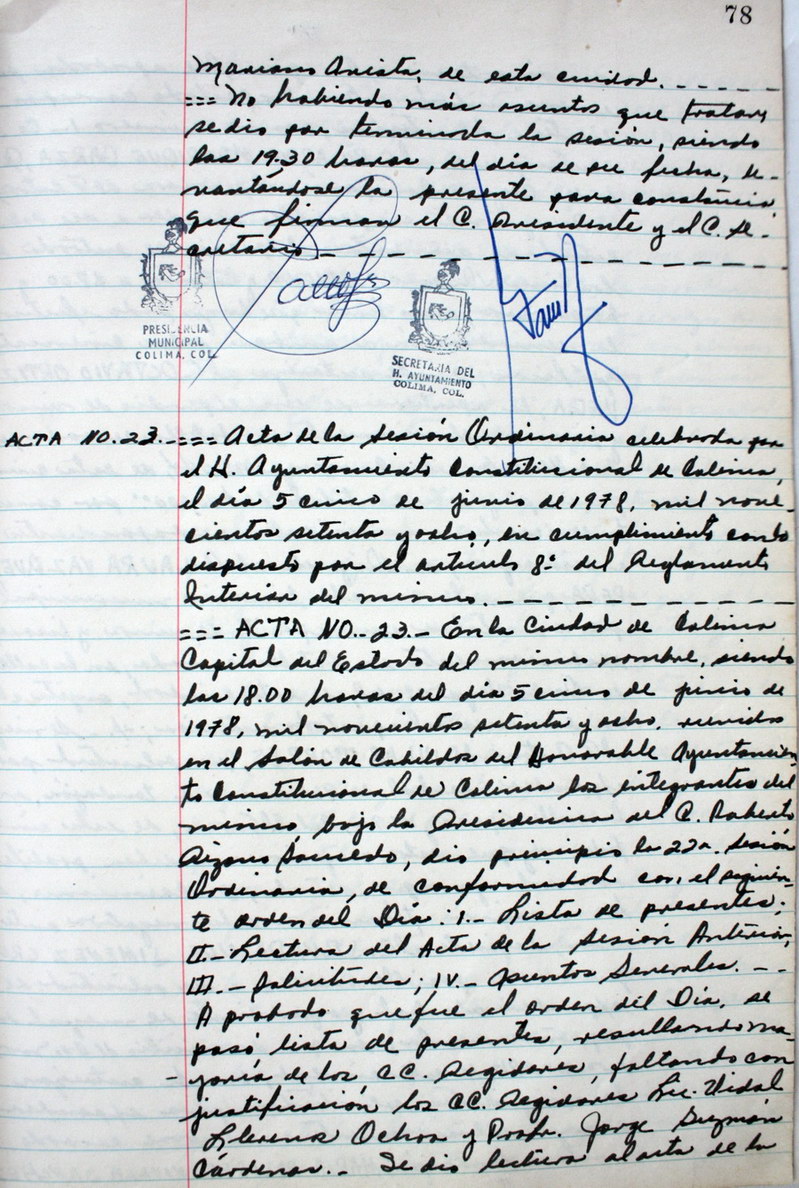 78
Mariano Arista, de esta ciudad.------
=== No habiendo más asuntos que tratar,
se dio por terminada la sesión, siendo
las 19.30 horas, del día de su fecha, le-
vantándose la presente para constancia
que firman el C. Presidente y el C. Se-
cretario.-------------
PRESIDENCIA
MUNICIPAL
COLIMA, COL.
SECRETARIA DEL
H. AYUNTAMIENTO
COLIMA, COL.
ACTA NO. 23.-=== Acta de la Sesión Ordinaria celebrada por
el H. Ayuntamiento Constitucional de Colima,
el día 5 cinco de junio de 1978, mil nove-
cientos setenta y ocho, en cumplimiento con lo
dispuesto por el artículo 8º del Reglamento
Interior del mismo.-----------
=== ACTA NO.-23.- En la Ciudad de Colima
Capital del Estado del mismo nombre, siendo
las 18.00 horas del día 5 cinco de junio de
1978, mil novecientos setenta y ocho, reunidos
en el Salón de Cabildos del Honorable Ayuntamien-
to Constitucional de Colima los integrantes del
mismo bajo la Presidencia del C. Roberto
Pizano Saucedo, dio principio la 22a. Sesión
Ordinaria, de conformidad con el siguien-
te orden del Día: I.- Lista de presentes;
II.- Lectura del Acta de la Sesión Anterior;
III.- Solicitudes; IV.- Asuntos Generales. - -
Aprobado que fue el orden del Día, se
pasó lista de presentes, resultando ma-
yoría de los CC. Regidores, faltando con
justificación los CC. Regidores Lic. Vidal
Llerenas Ochoa y Profr. Jorge Guzmán
Cárdenas.- Se dio lectura al acta de la